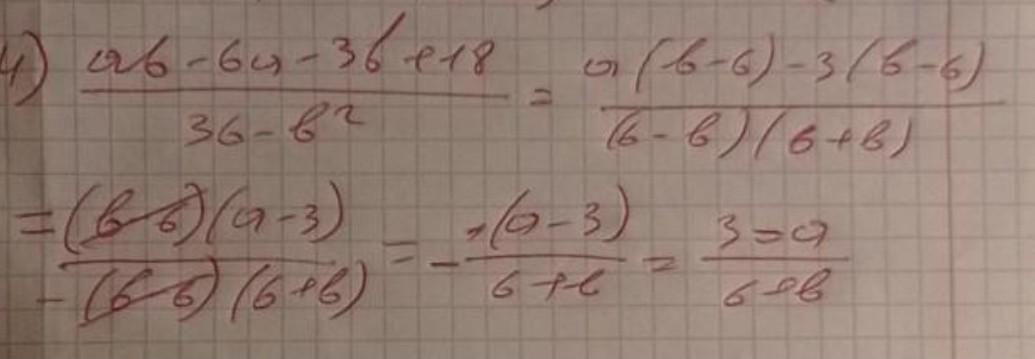 4) (ab - 6a - 3b + 18) / (36 - b²) = (a(b-6) - 3(b-6)) / ((6-b)(6+b))
= ((b-6)(a-3)) / (-(b-6)(6+b)) = - (a-3) / (6+b) = (3-a) / (6+b)